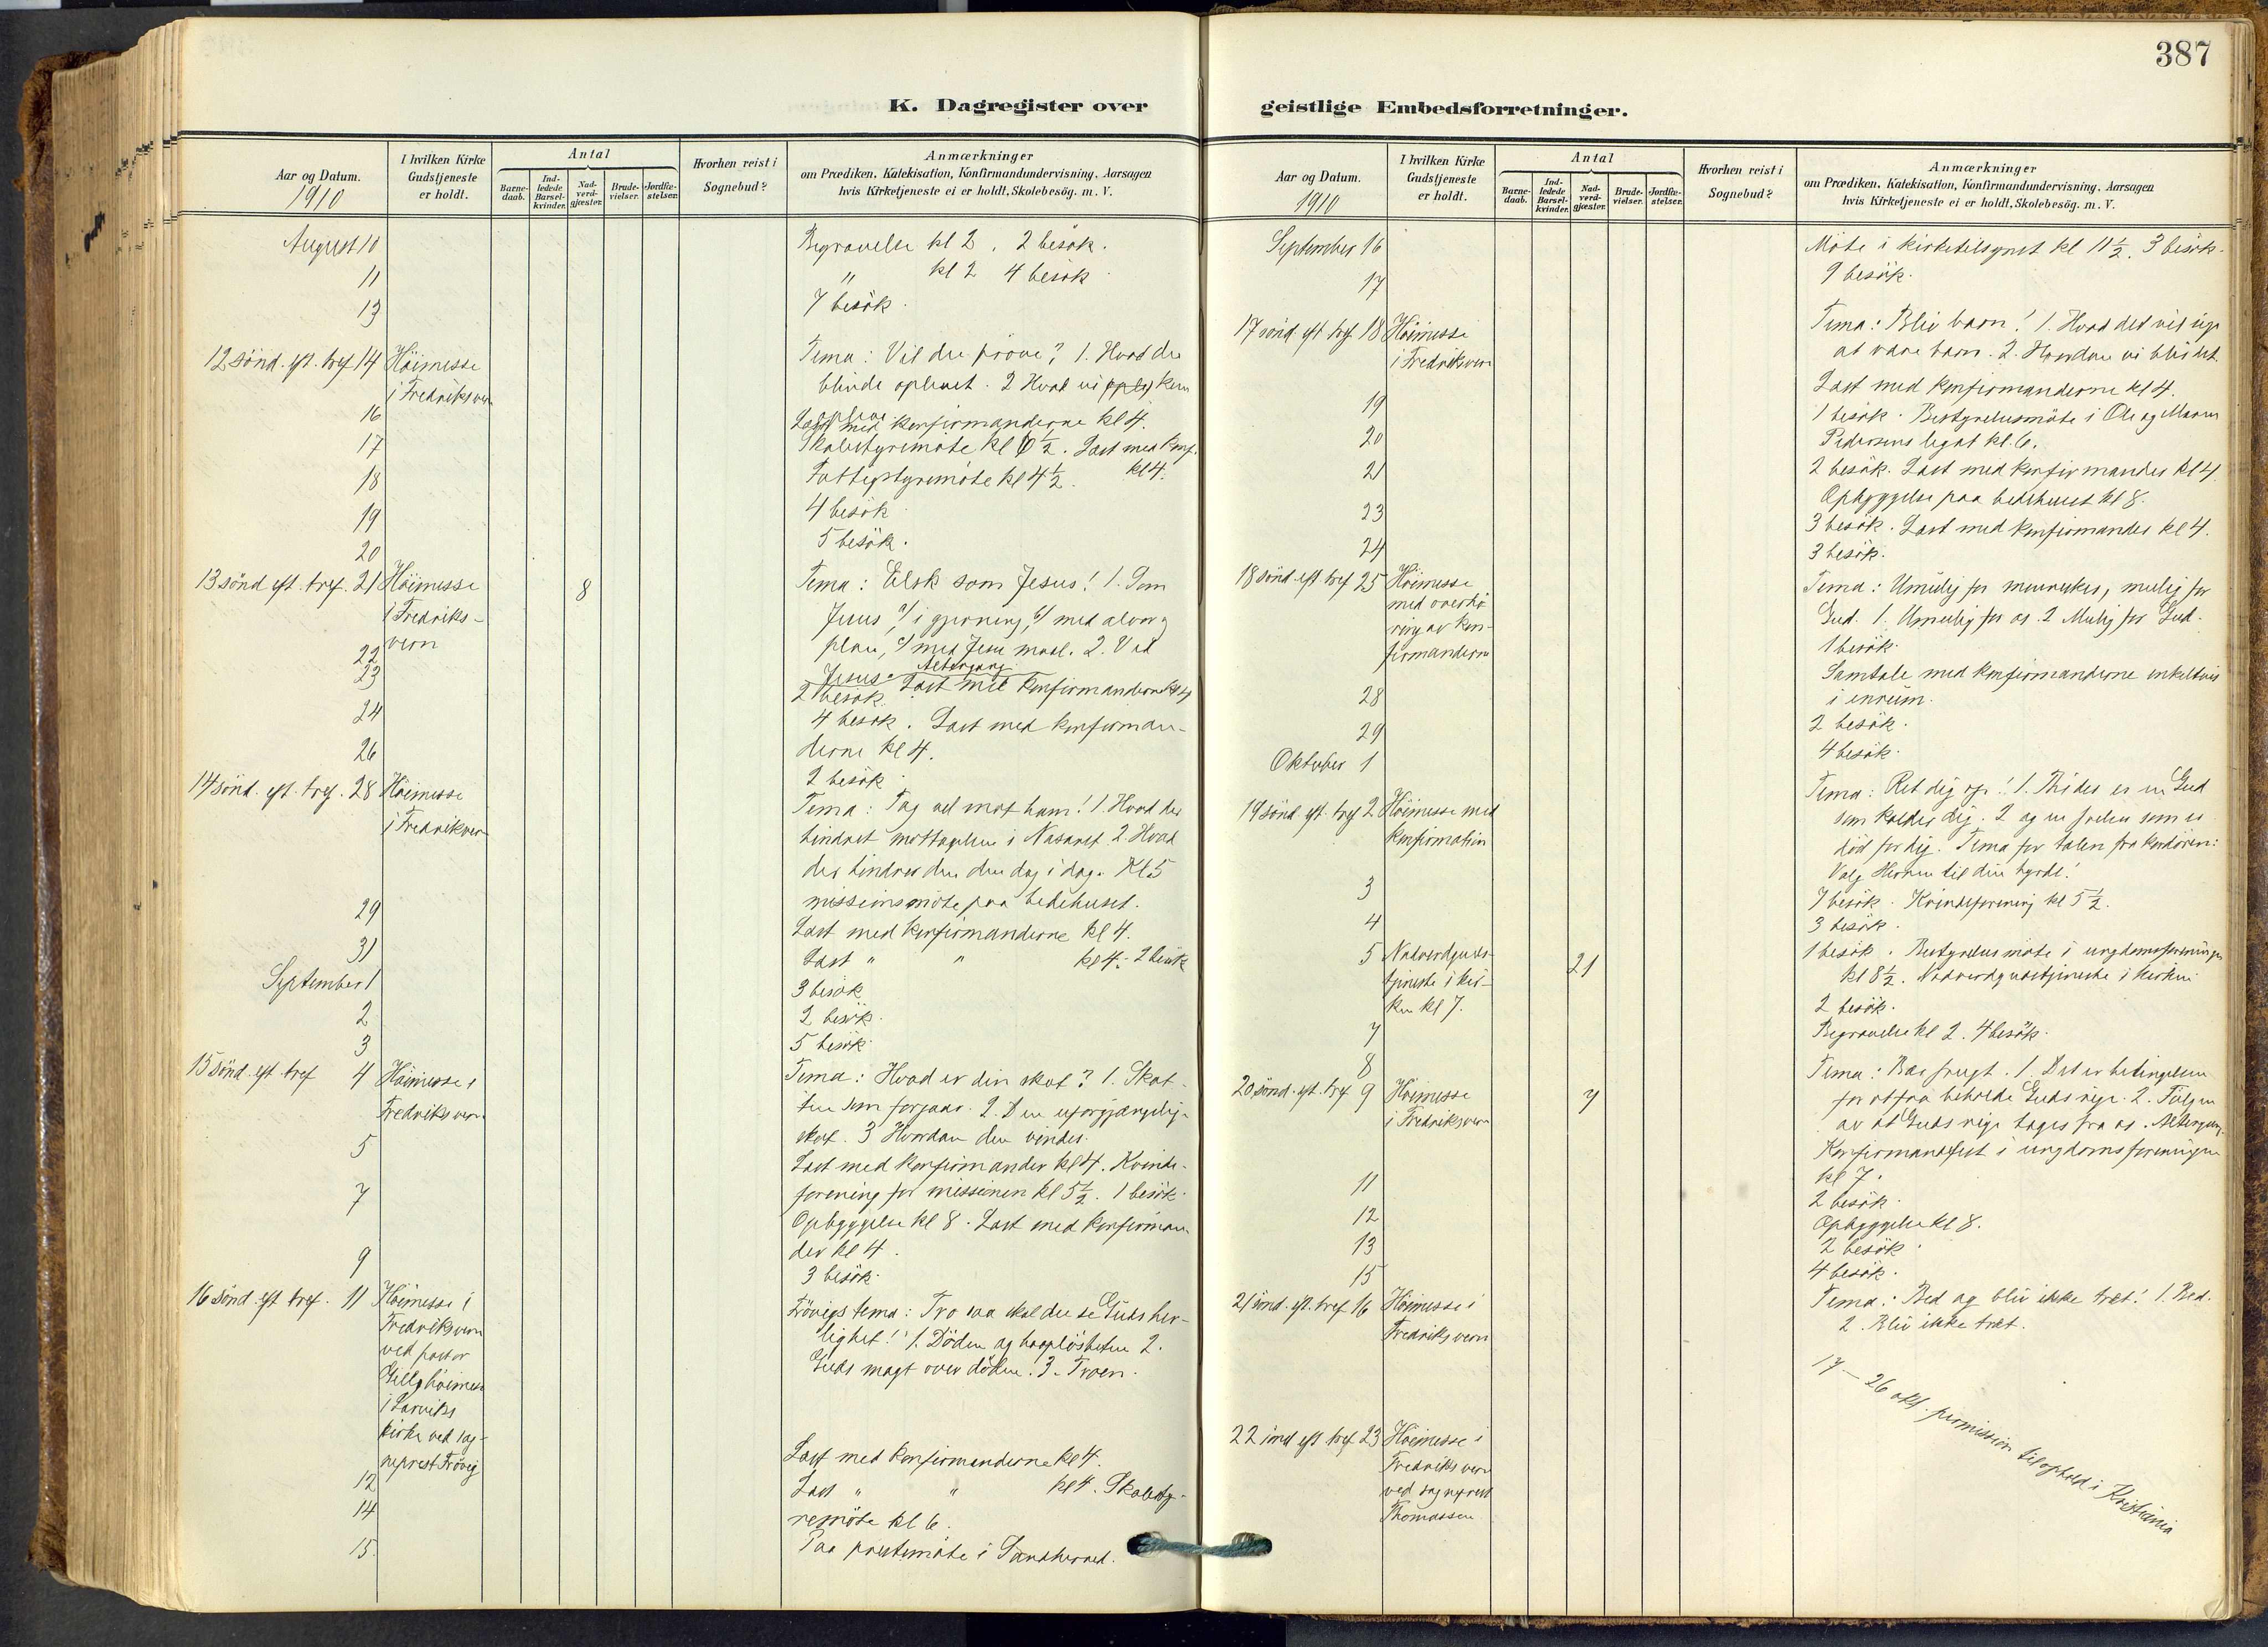 387
K. Dagregister over
Aar og Datum.
1910
I hvilken Kirke
Gudstjeneste
er holdt.
Antal
Barne-
daab.
Ind-
ledede
Barsel-
kvinder.
Nad-
verd-
gjæster.
Brude-
vielser.
Jordfæ-
stelser.
Hvorhen reist i
Sognebud?
Anmærkninger
om Prædiken, Katekisation, Konfirmandundervisning, Aarsagen
hvis Kirketjeneste ei er holdt, Skolebesög. m. V.
August 10 Begravelse kl 2. 2 besök.
11 " kl 2 4 besök
13 7 besök.
12 sönd. eft. tref 14 Höimesse Tema: Vil du prøve? 1. Hvad den
i Fredriksvern blinde oplevet. 2 Hvad vi kan
opleve.
16 Læst med konfirmanderne kl 4.
17 Skolestyremöte kl 6½. Læst med konf.
kl 4.
18 Fattigstyremöte kl 4½.
19 4 besök
20 5 besök.
13 sönd eft. tref. 21 Höimesse 8 Tema: Elsk som Jesus! 1. Som
i Fredriks- Jesus a/ i gjerning, b/ med alvor og
vern plan, c/ med Jesu maal. 2. Ved
Jesus. Altergang.
22 2 besök. Læst med konfirmanderne kl 4
23 4 besök. Læst med konfirman-
24 derne kl 4.
26 2 besök.
14 sönd. eft. tref. 28 Höimesse Tema: Tag vel mot ham! 1. Hvad der
i Fredriksvern hindret mottagelsen i Nasaret. 2. Hvad
der hindrer den den dag i dag. Kl 5
missionsmöte paa bedehuset.
29 Læst med konfirmanderne kl 4.
31 Læst " " kl 4. 2 besök
September 1 3 besök
2 2 besök.
3 5 besök
15 sönd. eft. tref 4 Höimesse i Tema: Hvad er din skat? 1. Skat-
Fredriksvern. ten som forgaar. 2. Den uforgjængelige
skat. 3 Hvordan den vindes.
5 Læst med konfirmander kl 4. Kvinde-
forening for missionen kl 5½. 1 besök.
7 Opbyggelse kl 8. Læst med konfirman-
der kl 4.
9 3 besök.
16 sönd. eft tref. 11 Höimesse i Frövigs tema: Tro saa skal du se Guds her-
Fredriksvern lighet! 1. Döden og haaplösheten 2.
ved pastor Guds magt over döden. 3. Troen.
höimesse
i Larviks
kirke ved sog-
neprest Frövig
12 Læst med konfirmanderne kl 4.
14 Læst " " kl 4. Skolesty-
remöte kl 6.
15. Paa prestemöte i Sandherred.
geistlige Embedsforretninger.
Aar og Datum.
1910
I hvilken Kirke
Gudstjeneste
er holdt.
Antal
Barne-
daab.
Ind-
ledede
Barsel-
kvinder.
Nad-
verd-
gjæster.
Brude-
vielser.
Jordfæ-
stelser.
Hvorhen reist i
Sognebud?
Anmærkninger
om Prædiken, Katekisation, Konfirmandundervisning, Aarsagen
hvis Kirketjeneste ei er holdt, Skolebesög. m. V.
September 16 Möte i kirketilsynet kl 11½. 3 besök.
17 9 besök.
17 sönd. eft tref 18 Höimesse Tema: Bliv barn! 1. Hvad det vil sige
i Fredriksvern at være barn. 2. Hvordan vi blir det.
19 Læst med konfirmanderne kl 4.
20 1 besök. Bestyrelsesmöte i Ole og Maren
Pedersens legat kl. 6.
21 2 besök. Læst med konfirmander kl 4.
Opbyggelse paa bedehuset kl 8.
23 3 besök. Læst med konfirmander kl 4.
24 3 besök.
18 sönd. eft tref 25 Höimesse Tema: Umulig for mennesker, mulig for
med overhö- Gud. 1. Umulig for os. 2 Mulig for Gud.
ring av kon- 1 besök.
firmanderne Samtale med konfirmanderne enkeltvis
i enrum.
28 2 besök.
29 4 besök.
Oktober 1
19 sönd. eft. tref 2 Höimesse med Tema: Ret dig op! 1. Thi der er en Gud
konfirmation som kalder dig. 2 og en frelser som er
död for dig. Tema for talen fra kordören:
Vælg Herren til din hyrde!
3 7 besök. Kvindeforening kl 5½.
4 3 besök.
5 Nadverdguds- 21 1 besök. Bestyrelsesmöte i ungdomsforeningen
tjeneste i kir- kl 8½. Nadverdgudstjeneste i kirken
ken kl 7.
7 2 besök.
8 Begravelse kl 2. 4 besök.
20 sönd. eft. tref 9 Höimesse 7 Tema: Bær frugt. 1. Det er betingelsen
i Fredriksvern for at faa beholde Guds rige. 2. Fölgen
av at Guds rige tages fra os. Altergang.
Konfirmandfest i ungdomsforeningen
kl 7.
11 2 besök.
12 Opbyggelse kl 8.
13 2 besök.
15 4 besök.
21 sönd. eft. tref 16 Höimesse i Tema: Bed og bliv ikke træt! 1. Bed.
Fredriksvern 2. Bliv ikke træt.
17 – 26 okt. permission til ophold i Kristiania
22 sönd eft tref 23 Höimesse i
Fredriksvern
ved sogneprest
Thomassen